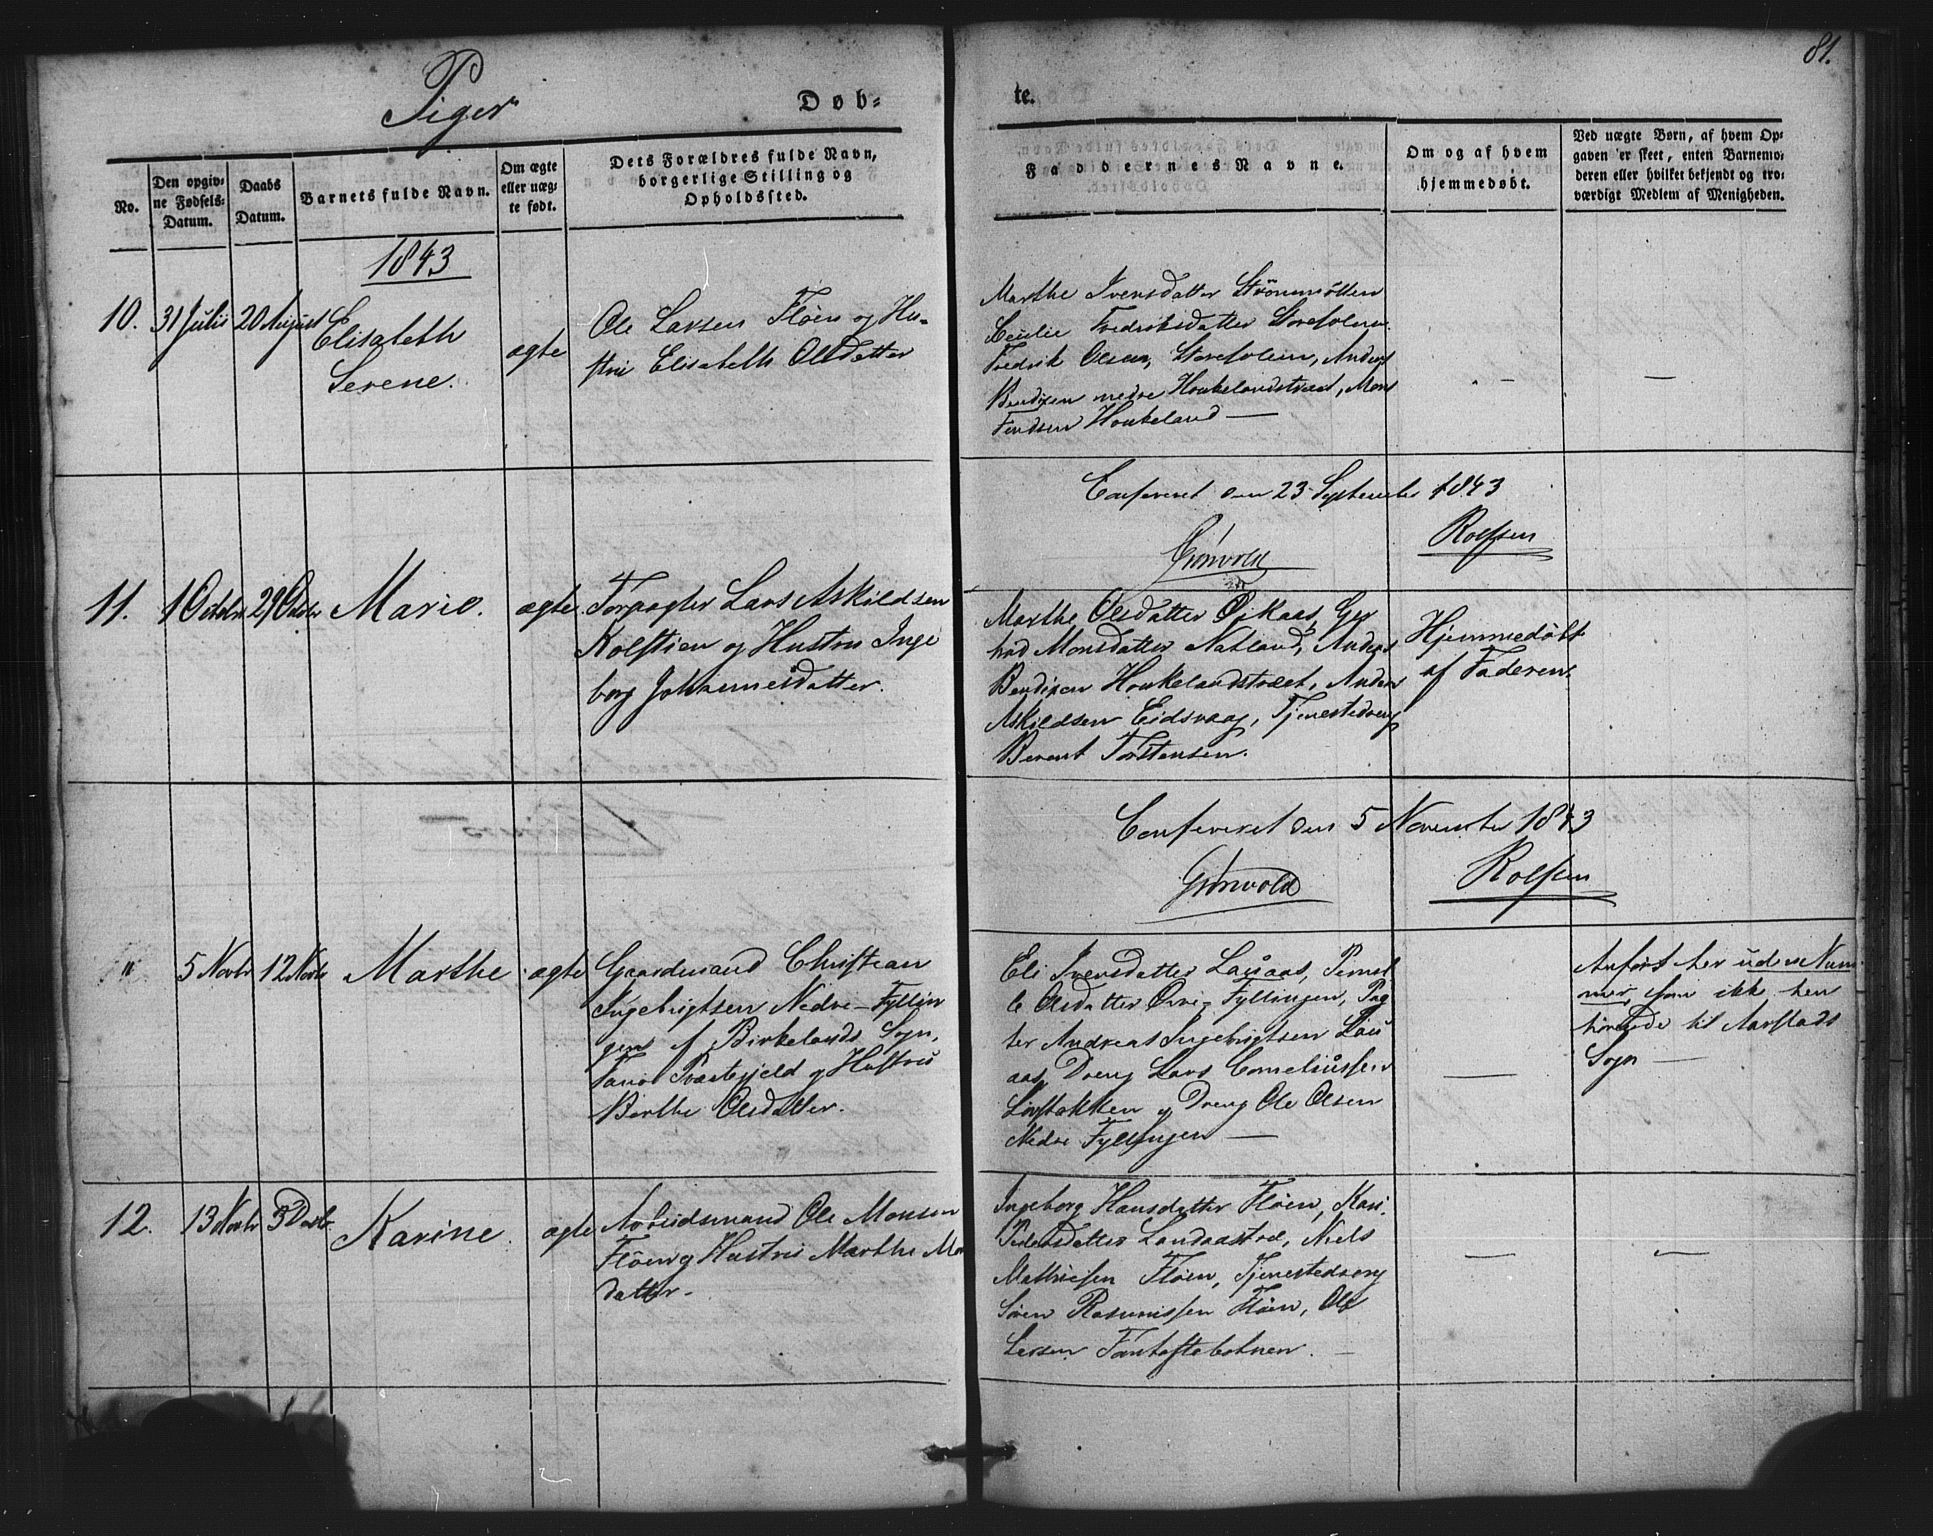 81.
Piger
Døb-
te.
No.
Den opgiv-
ne Fødsels-
Datum.
Daabs
Datum.
Barnets fulde Navn.
Om ægte
eller uæg-
te født.
Dets Forældres fulde Navn,
borgerlige Stilling og
Opholdssted.
Faddernes Navne.
Om og af hvem
hjemmedøbt.
Ved uægte Børn, af hvem Op-
gaven er skeet, enten Barnemo-
deren eller hvilket bekjendt og tro-
værdigt Medlem af Menigheden.
1843
10.
31 Julii
20 August
Elisabeth
Serene.
ægte
Ole Larsen Fløen og Hu-
stru Elisabeth Olsdatter
Marthe Iversdatter Strømmøllen
Cecilie Fredriksdatter Storesolem
Fredrik Olsen, Storesolem, Anders
Bendixen nedre Houkelandstræet, Mons
Houkeland —
Confereret den 23 September 1843
Grønvold
Rolfsen
11.
1 Octobr
29 Octobr
Marie.
ægte
Forpagter Lars Askildsen
Kolstien og Hustru Inge
borg Johannesdatter.
Marthe Olsdatter Ger
trud Monsdatter Natland, Anders
Bendixen Houkelandstræet, Anders
Askildsen Eidsvaag, Tjenestedreng
Berent Torstensen.
Hjemmedøbt
af Faderen
Confereret den 5 November 1843
Grønvold
Rolfsen
"
5 Novbr
12 Novbr
Marthe
ægte
Gaardmand Christian
Ingebrigtsen Nedre-Fyllin
gen af Birkelands Sogn,
Fanø Præstegjeld og Hustru
Berthe Olsdatter.
Eli Iversdatter Lauaas, Pernil
le Olsdatter Øvre-Fyllingen, Pag
ter Andreas Ingebrigtsen Lau
aas, Dreng Lars Corneliussen
Løvstakken og Dreng Ole Olsen
Nedre Fyllingen —
Anført her uden Num
mer, som ikke hen
hørende til Aarstads
Sogn —
12.
13 Novbr
3 Decbr
Karine.
ægte
Arbeidsmand Ole Monsen
Fløen og Hustru Marthe Mo
datter.
Ingeborg Hansdatter Fløen, Kari
Pedersdatter Landaastræ, Niels
Mathiesen Fløen, Tjenestedreng
Søren Rasmussen Fløen, Ole
Larsen Fantoftebotnen.